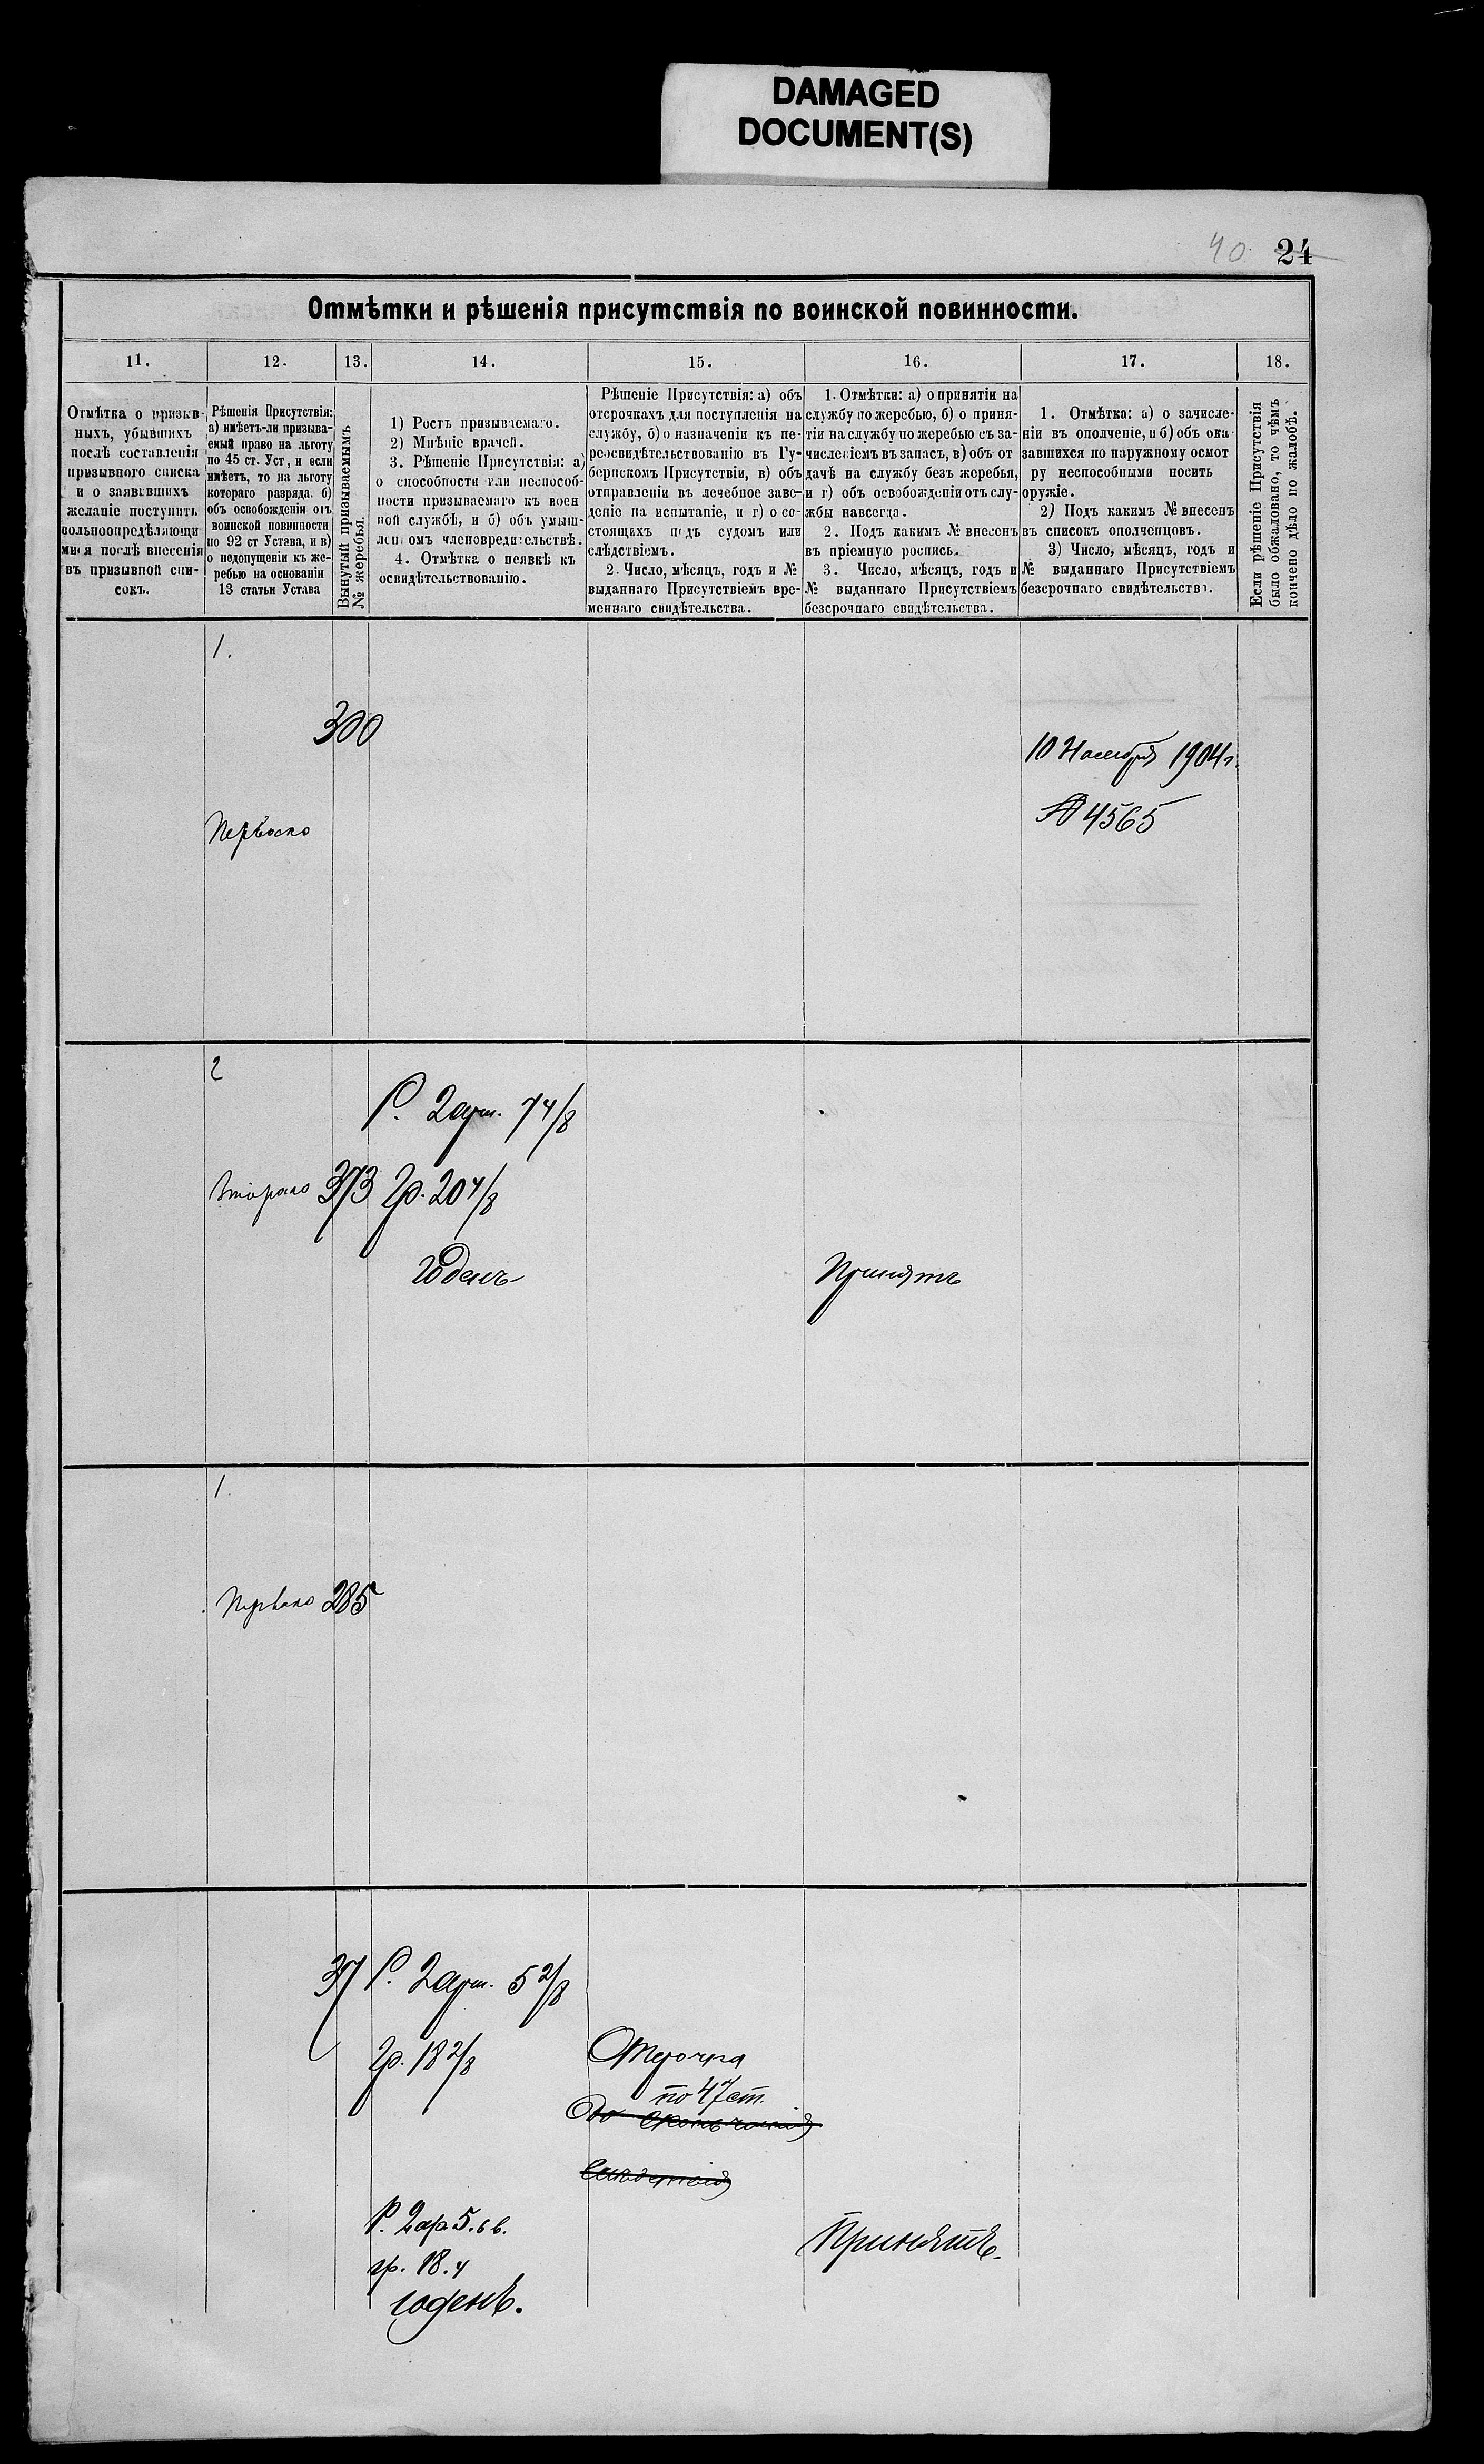 DAMAGED
DOCUMENT(S)
40 24
Отмѣтки и рѣшенія присутствія по воинской повинности.
11.
12.
13.
14.
15.
16.
17.
18.
Отмѣтка о призыв-
ныхъ, убывшихъ
послѣ составленія
призывного списка
и о заявившихъ
желаніе поступить
вольноопредѣляющи
мися послѣ внесенія
въ призывной спи-
сокъ.
Рѣшенія Присутствія:
а) имѣетъ-ли призыва-
емый право на льготу
по 45 ст. Уст, и если
имѣетъ, то на льготу
котораго разряда. б)
объ освобожденіи отъ
воинской повинности
по 92 ст Устава, и в)
о недопущеніи къ же-
ребью на основаніи
13 статьи Устава
Вынутый призываемымъ
№ жеребья.
1) Ростъ призываемаго.
2) Мнѣніе врачей.
3. Рѣшеніе Присутствія: а)
о способности или неспособ-
ности призываемаго къ воен
ной службѣ, и б) объ умыш-
ленномъ членовредительствѣ.
4. Отмѣтка о неявкѣ къ
освидѣтельствованію.
Рѣшеніе Присутствія: а) объ
отсрочкахъ для поступленія на
службу, б) о назначеніи къ пе-
реосвидѣтельствованію въ Гу-
бернскомъ Присутствіи, в) объ
отправленіи въ лечебное заве-
деніе на испытаніе, и г) о со-
стоящихъ подъ судомъ или
слѣдствіемъ.
2. Число, мѣсяцъ, годъ и №
выданнаго Присутствіемъ вре-
меннаго свидѣтельства.
1. Отмѣтки: а) о принятіи на
службу по жеребью, б) о приня-
тіи на службу по жеребью съ за-
численіемъ въ запасъ, в) объ от
дачѣ на службу безъ жеребья,
и г) объ освобожденіи отъ слу-
жбы навсегда.
2. Подъ какимъ № внесенъ
въ пріемную роспись.
3. Число, мѣсяцъ, годъ и
№ выданнаго Присутствіемъ
безсрочнаго свидѣтельства.
1. Отмѣтка: а) о зачисле-
ніи въ ополченіе, и б) объ ока
завшихся по наружному осмот
ру неспособными носить
оружіе.
2) Подъ какимъ № внесенъ
въ списокъ ополченцовъ.
3) Число, мѣсяцъ, годъ и
№ выданнаго Присутствіемъ
безсрочнаго свидѣтельства.
Если рѣшеніе Присутствія
было обжаловано, то чѣмъ
кончено дѣло по жалобѣ.
1.
300
10 Ноября 1904 г.
№ 4565
Перваго
2
Р. 2 арш. 7 4/8
Втораго 373 Гр. 20 4/8
Годенъ
Принятъ
1
Перваго 285
37 Р. 2 арш. 5 2/8
Гр. 18 2/8
Отсрочка
по 47 ст.
до окончанія
Р. 2 ар 5. 6 в.
гр. 18. 4
годенъ.
Принятъ.